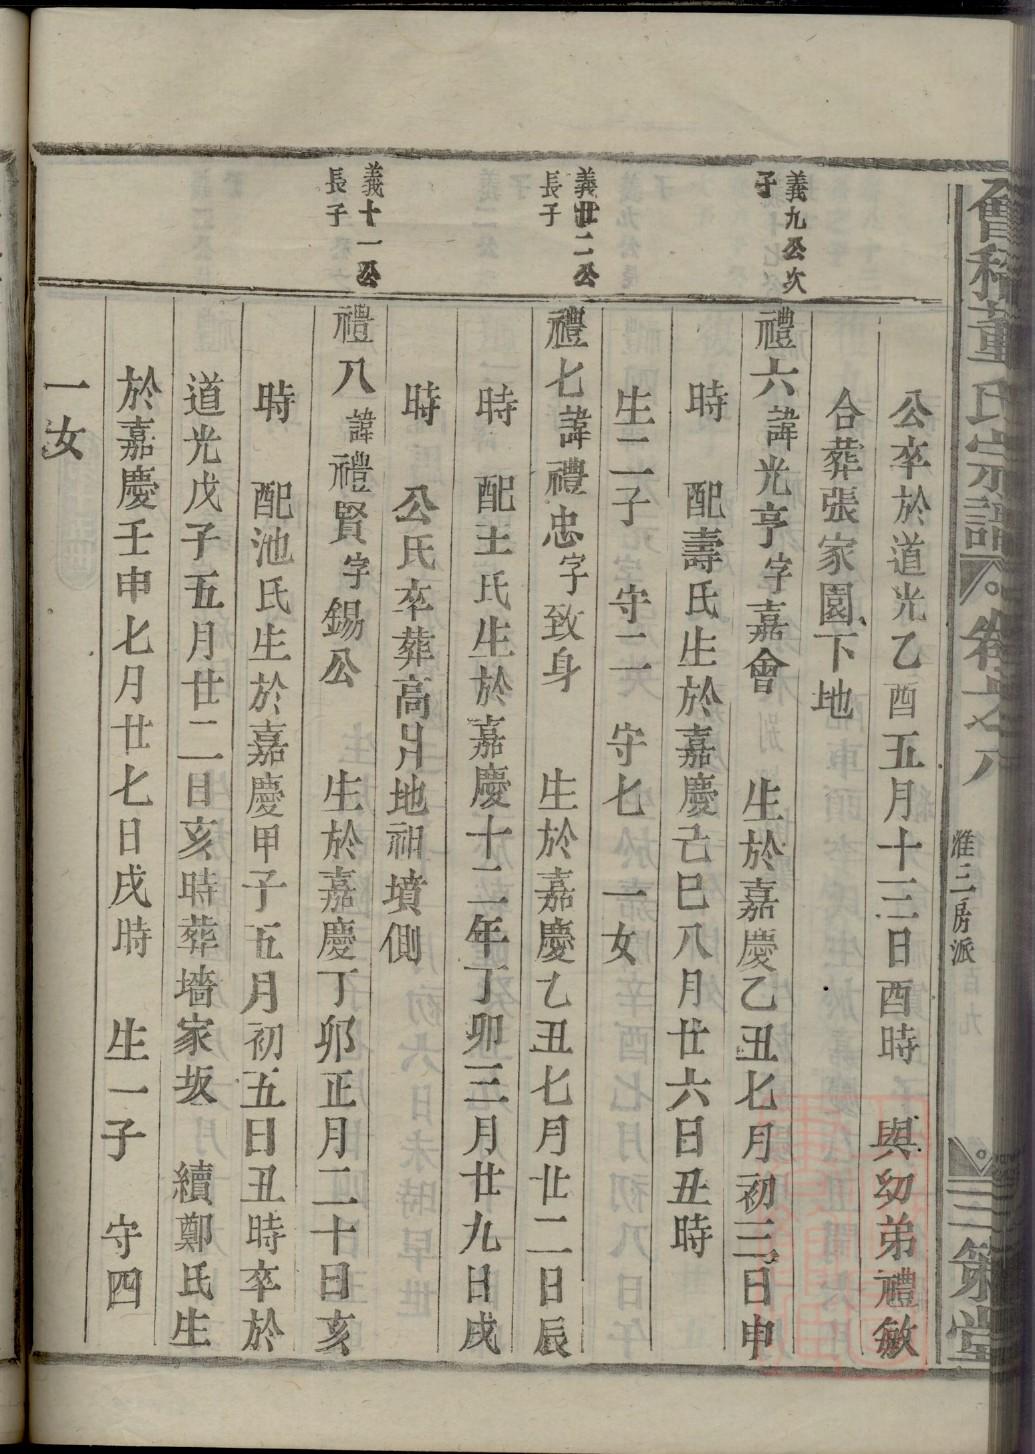 會稽董氏宗譜 卷之六 惟三房派 三策堂
公卒於道光乙酉五月十三日酉時 與幼弟禮敏
合葬張家園下地
義九公次
子
禮六諱光亨字嘉會 生於嘉慶乙丑七月初三日申
時 配壽氏生於嘉慶己巳八月廿六日丑時
生二子 守二英 守七 一女
義廿二公
長子
禮七諱禮忠字致身 生於嘉慶乙丑七月廿二日辰
時 配王氏生於嘉慶十二年丁卯三月廿九日戌
時 公氏卒葬高爿地祖墳側
義十一公
長子
禮八諱禮賢字錫公 生於嘉慶丁卯正月二十日亥
時 配池氏生於嘉慶甲子五月初五日丑時卒於
道光戊子五月廿二日亥時葬墻家坂 續鄭氏生
於嘉慶壬申七月廿七日戌時 生一子 守四
一女